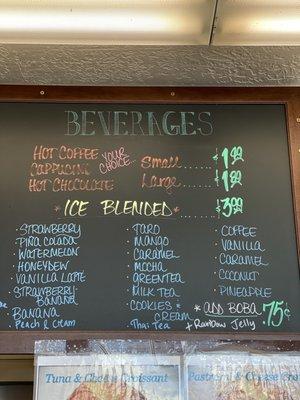 BEVERAGES
HOT COFFEE
CAPPUCINO
HOT CHOCOLATE
YOUR CHOICE...
Small $1.49
Large $1.99
*ICE BLENDED* $3.99
· STRAWBERRY
· PIÑA COLADA
· WATERMELON
· HONEYDEW
· VANILLA LATTE
· STRAWBERRY-
BANANA
· BANANA
Peach & Cream
· TARO
· MANGO
· CARAMEL
· MOCHA
· GREENTEA
· MILK TEA
· COOKIES &
CREAM
Thai Tea
· COFFEE
· VANILLA
· CARAMEL
· COCONUT
· PINEAPPLE
* ADD BOBA 75¢
+ Rainbow Jelly
Tuna & Cheese Croissant
Pastrami & Cheese Cro